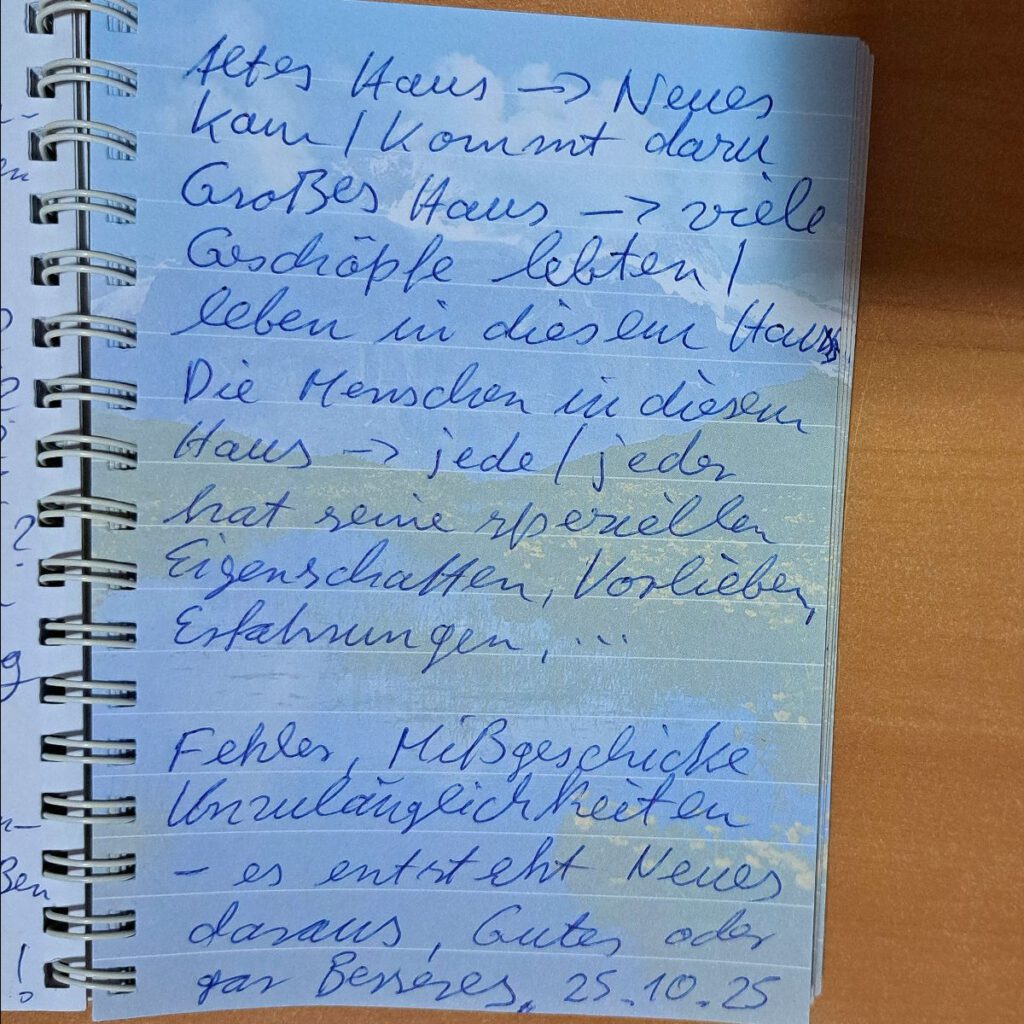 Altes Haus -> Neues
kam / kommt dazu
Großes Haus -> viele
Geschöpfe lebten /
leben in diesem Haus
Die Menschen in diesem
Haus -> jede / jeder
hat seine speziellen
Eigenschaften, Vorlieben,
Erfahrungen, ...
Fehler, Mißgeschicke
Unzulänglichkeiten
- es entsteht Neues
daraus, Gutes oder
gar Besseres, 25.10.25